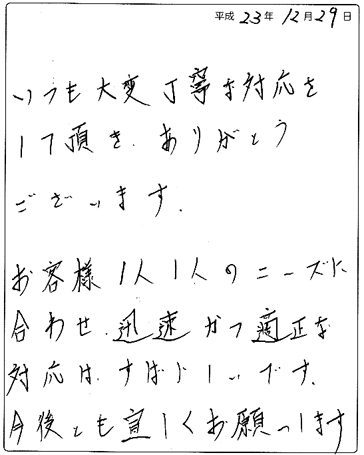 平成 23年 12月 29日
いつも大変丁寧な対応を
して頂き、ありがとう
ございます。
お客様1人1人のニーズに
合わせ、迅速かつ適正な
対応は、すばらしいです。
今後とも宜しくお願いします